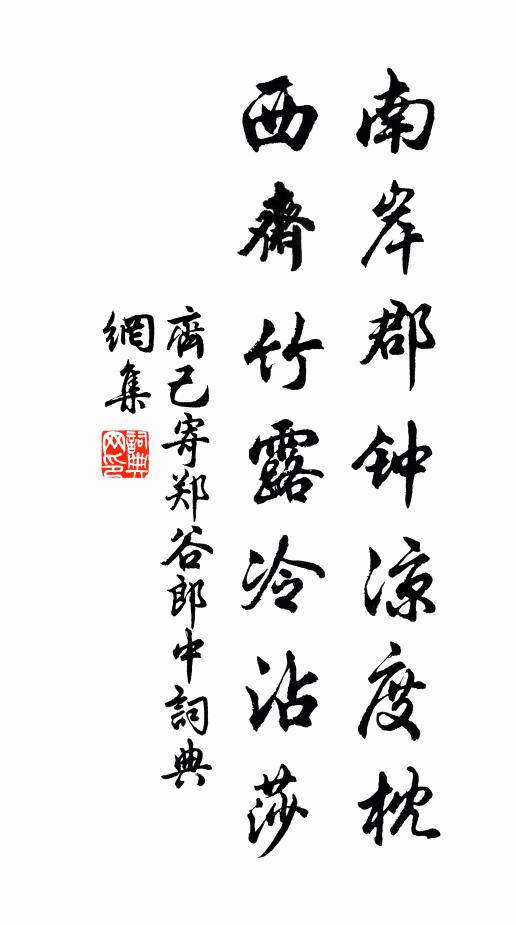 南岸郡钟凉度枕
西齋竹露冷沾莎
齊己寄郑谷郎中詞典
網集
詞典网印